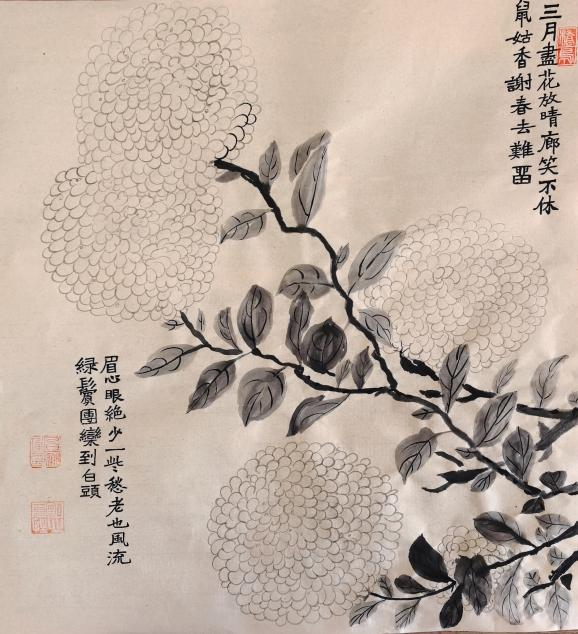 三月盡花放晴廊笑不休
鼠姑香謝春去難畱
眉心眼絶少一些愁老也風流
綠鬢團欒到白頭